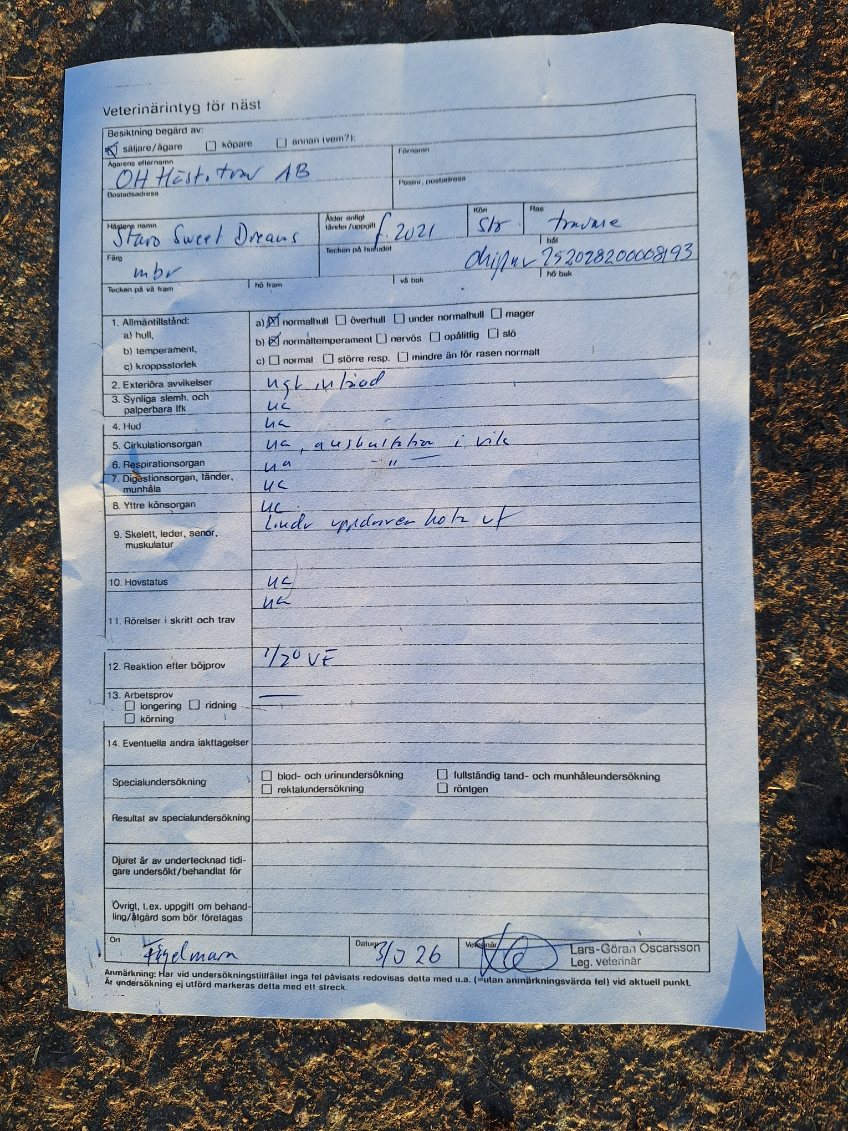 Veterinärintyg för häst
Besiktning begärd av:
☒ säljare/ägare ☐ köpare ☐ annan (vem?):
Ägarens efternamn
Förnamn
OH Häst o. trav AB
Bostadsadress
Postnr, postadress
Hästens namn
Ålder enligt tänder/uppgift
Kön
Ras
Staro Sweet Dreams
f. 2021
Sto
travare
Färg
Tecken på huvudet
bål
mbr
chipnr 752098200008193
Tecken på vä fram
hö fram
vä bak
hö buk
1. Allmäntillstånd:
a) hull,
b) temperament,
c) kroppsstorlek
a) ☒ normalhull ☐ överhull ☐ under normalhull ☐ mager
b) ☒ normaltemperament ☐ nervös ☐ opålitlig ☐ slö
c) ☐ normal ☐ större resp. ☐ mindre än för rasen normalt
2. Exteriöra avvikelser
ngt
3. Synliga slemh. och
palperbara lfk
ua
4. Hud
ua
5. Cirkulationsorgan
ua, auskultation i vila
6. Respirationsorgan
ua —"—
7. Digestionsorgan, tänder,
munhåla
ua
8. Yttre könsorgan
ua
9. Skelett, leder, senor,
muskulatur
Lindr uppdriven kota vf
10. Hovstatus
ua
11. Rörelser i skritt och trav
ua
12. Reaktion efter böjprov
1/2° VF
13. Arbetsprov
—
☐ longering ☐ ridning
☐ körning
14. Eventuella andra iakttagelser
Specialundersökning
☐ blod- och urinundersökning ☐ fullständig tand- och munhåleundersökning
☐ rektalundersökning ☐ röntgen
Resultat av specialundersökning
Djuret är av undertecknad tidi-
gare undersökt/behandlat för
Övrigt, t.ex. uppgift om behand-
ling/åtgärd som bör företagas
Ort
Datum
Veterinär
26
Lars-Göran Oscarsson
Leg. veterinär
Anmärkning: Har vid undersökningstillfället inga fel påvisats redovisas detta med u.a. (=utan anmärkningsvärda fel) vid aktuell punkt.
Är undersökning ej utförd markeras detta med ett streck.